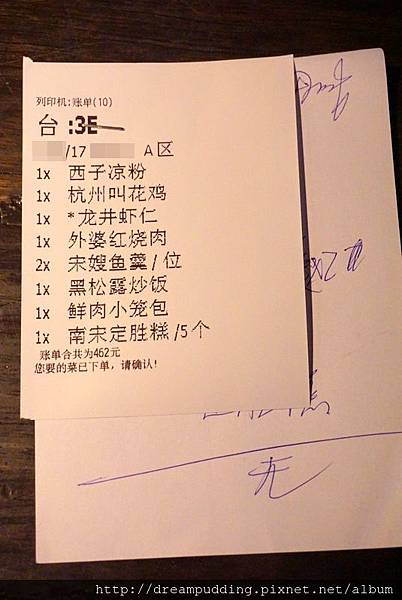 列印机:账单(10)
台 :3E
/17 A区
1x 西子凉粉
1x 杭州叫花鸡
1x *龙井虾仁
1x 外婆红烧肉
2x 宋嫂鱼羹/位
1x 黑松露炒饭
1x 鲜肉小笼包
1x 南宋定胜糕/5个
账单合共为462元
您要的菜已下单，请确认!
无
http://dreampudding.pixnet.net/album